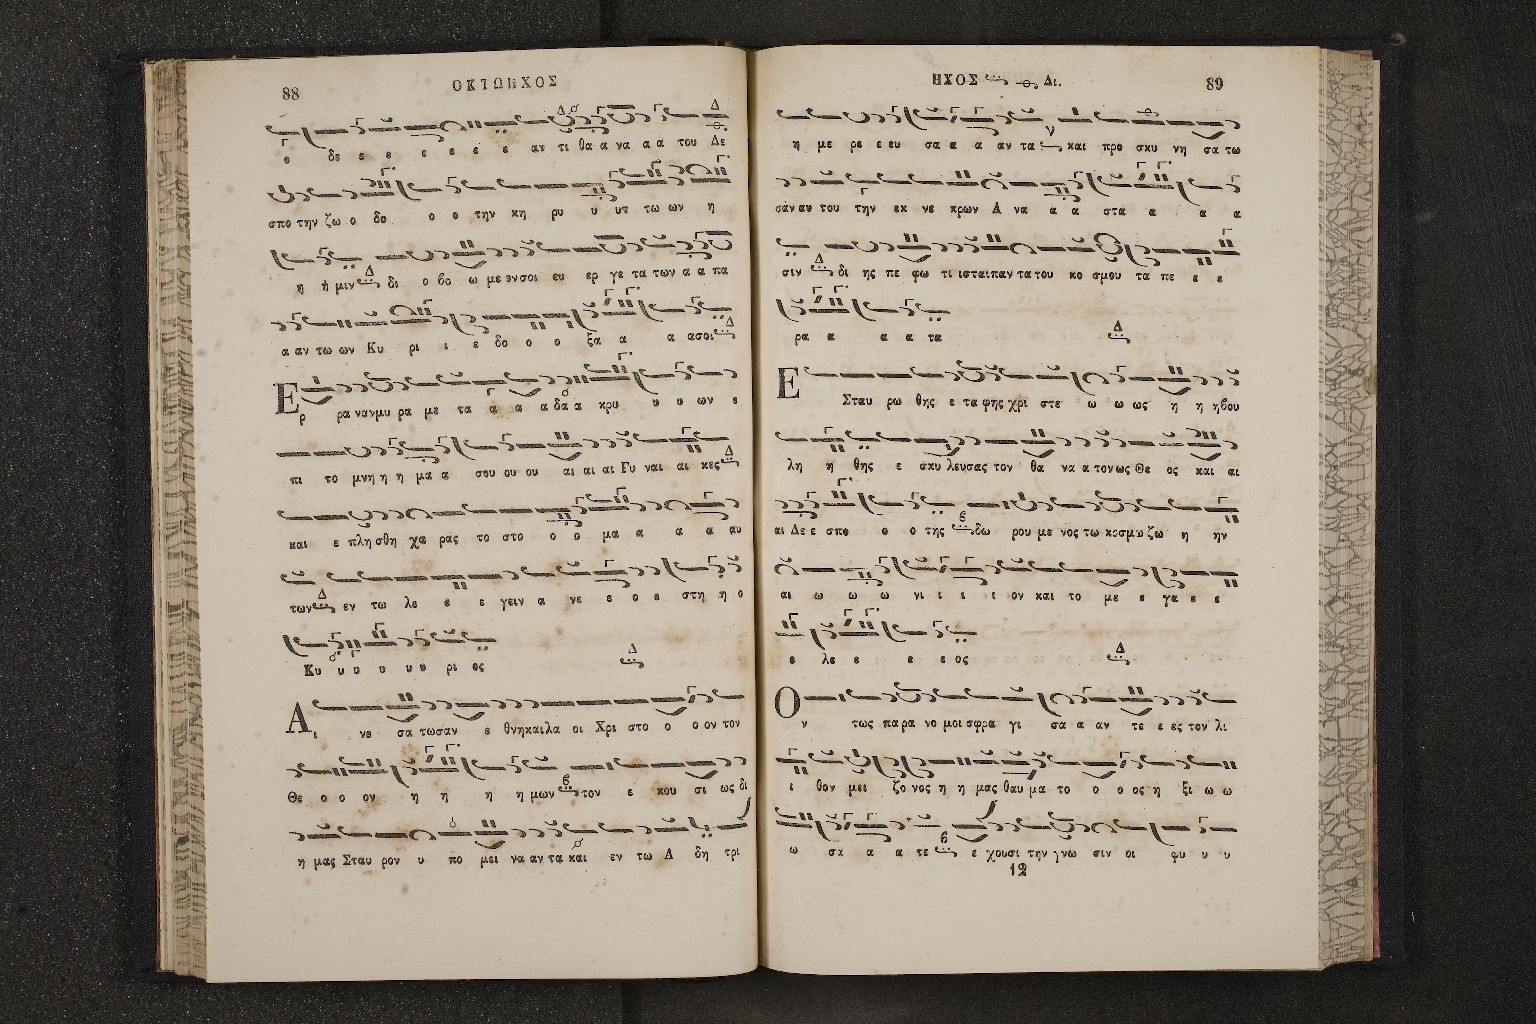 88
ΟΚΤΩΗΧΟΣ
ο δε ε ε ε ε ε ε αν τι θα α να α α του Δε
σπο την ζω ο δο ο ο την κη ρυ υ υτ τω ων η
η ή μιν δι ο βο ω με εν σοι ευ ερ γε τα των α α πα
α αν τω ων Κυ ρι ι ε δο ο ο ξα α α α σοι
Ερ ρα ναν μυ ρα με τα α α α δα α κρυ υ υ ων ε
πι το μνη η η μα α σου ου ου αι αι αι Γυ ναι αι κες
και ε πλη σθη χα ρας το στο ο ο μα α α α αυ
των εν τω λε ε ε γειν α νε ε ο ε στη η ο
Κυ υ υ υ υ υ ρι ος
Αι νε σα τωσαν ε θνη και λα οι Χρι στο ο ο ον τον
Θε ο ο ον η η η η μων τον ε κου σι ως δι
η μας Σταυ ρον υ πο μει να αν τα και εν τω Α δη τρι
ΗΧΟΣ Δι.
89
η με ρε ε ευ σα α α αν τα και προ σκυ νη σα τω
σαν αυ του την εκ νε κρων Α να α α στα α α α
σιν δι ης πε φω τι ισται παν τα του κο σμου τα πε ε ε
ρα α α α τα
Ε Σταυ ρω θης ε τα φης χρι στε ω ω ως η η ηβου
λη η θης ε σκυ λευσας τον θα να α τον ως Θε ος και αι
αι Δε ε σπο ο ο της δω ρου με νος τω κοσμω ζω η ην
αι ω ω ω νι ι ι ι ον και το με ε γα ε ε
ε λε ε ε ε ος
Ον τως πα ρα νο μοι σφρα γι σα α αν τε ε ες τον λι
ι θον μει ζο νος η η μας θαυ μα το ο ο ος η ξι ω ω
ω σα α α τε ε χουσι την γνω σιν οι φυ υ υ
12